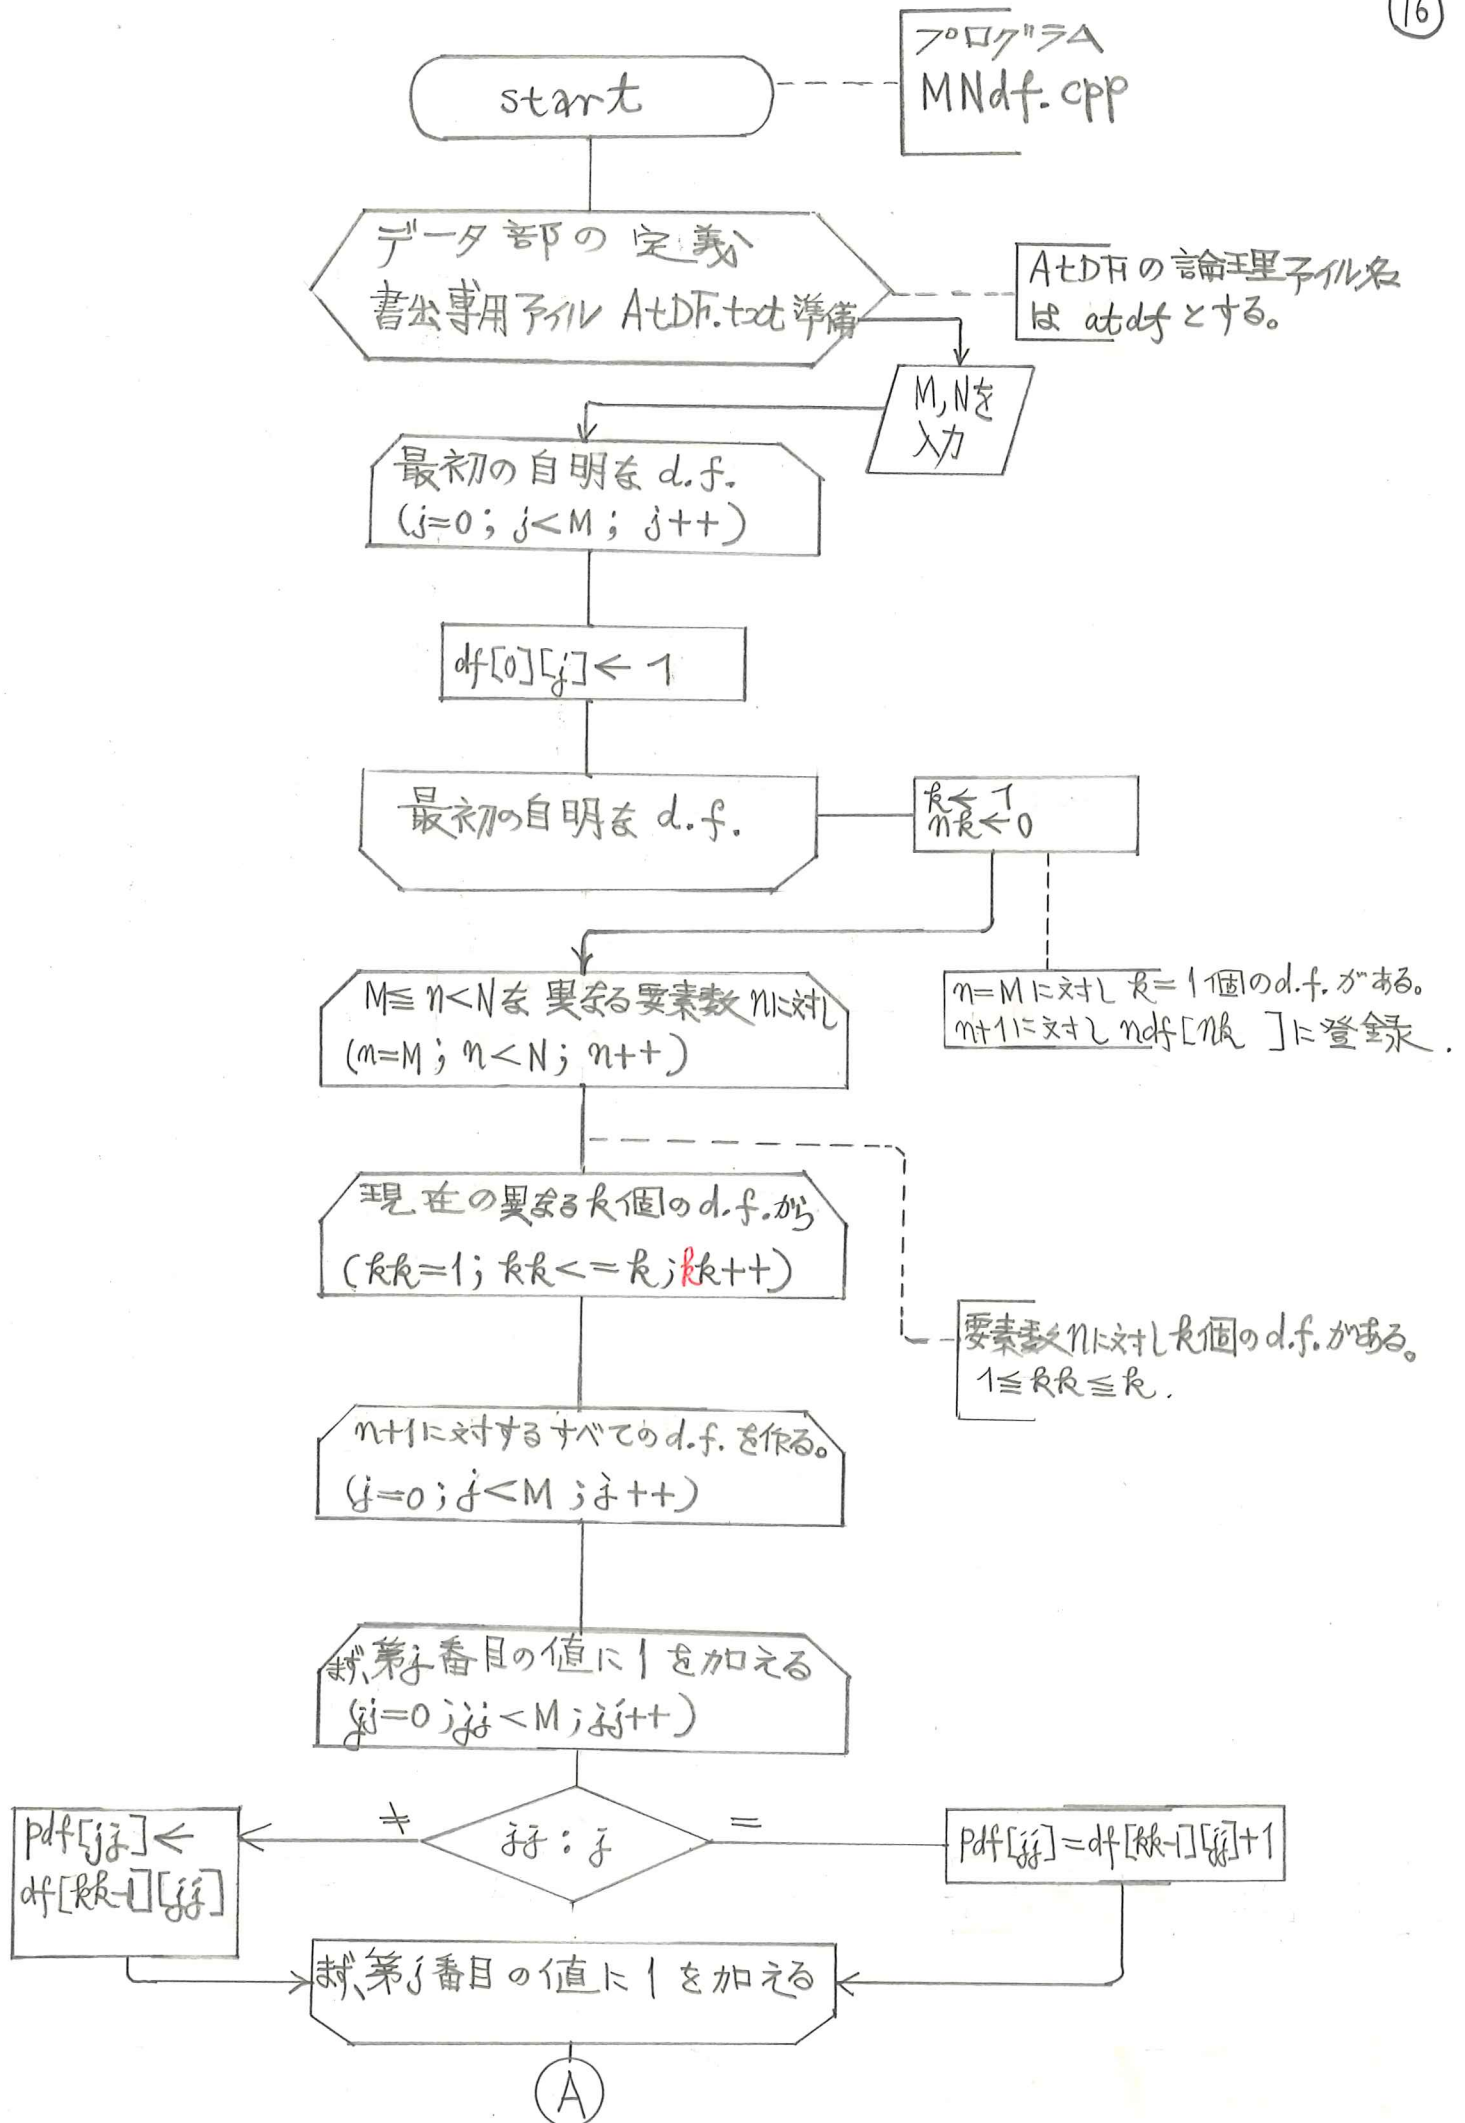 16
start
プログラム
MNdf.cpp
データ部の定義
書出専用ファイル AtDF.txt 準備
AtDFの論理ファイル名
は atdf とする。
M,Nを
入力
最初の自明な d.f.
(j=0; j<M; j++)
df[0][j]← 1
最初の自明な d.f.
k← 1
nk←0
n=Mに対し k=1個のd.f.がある。
n+1に対し ndf[nk ]に登録.
M≦n<Nな 異なる要素数nに対し
(n=M; n<N; n++)
現在の異なるk個のd.f.から
(kk=1; kk<=k;kk++)
要素数nに対しk個のd.f.がある。
1≦kk≦k.
n+1に対するすべてのd.f.を作る。
(j=0;j<M;j++)
まず、第j番目の値に1を加える
(jj=0;jj<M;jj++)
≠
jj:j
=
pdf[jj]←
df[kk-1][jj]
pdf[jj]=df[kk-1][jj]+1
まず、第j番目の値に1を加える
A